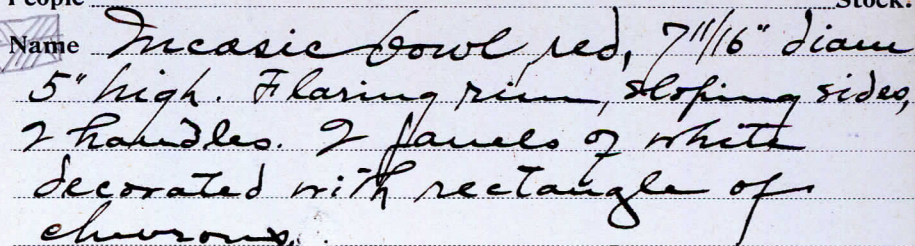 People Stock.
Name Incasic bowl red, 7 11/16" diam
5" high. Flaring rim, sloping sides,
2 handles. 2 panels of white
decorated with rectangle of
chevrons.